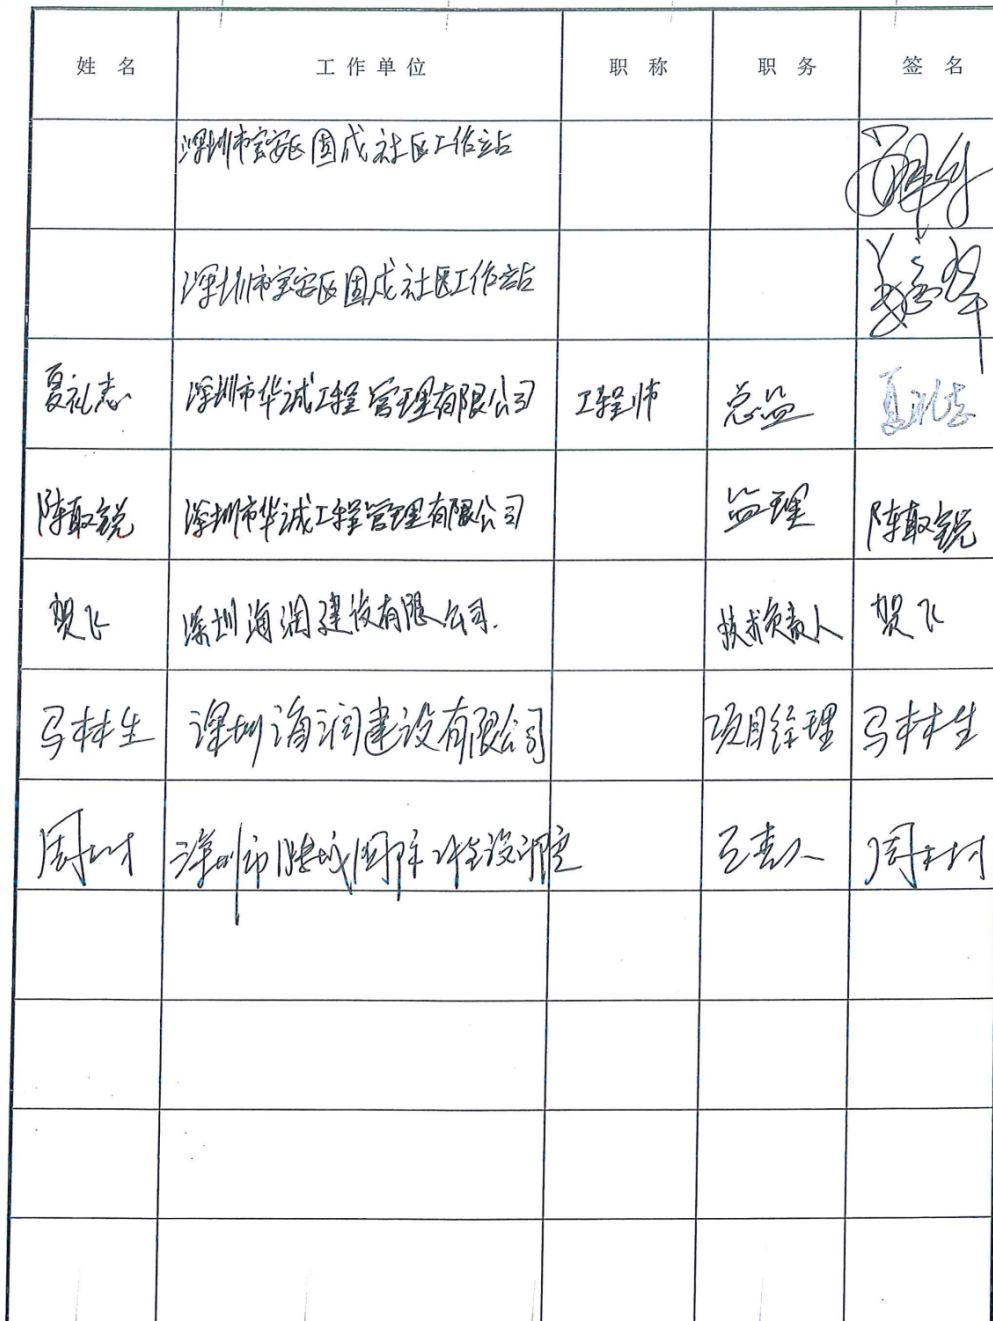 姓 名 工 作 单 位 职 称 职 务 签 名
深圳市宝安区固戍社区工作站
深圳市宝安区固戍社区工作站
夏礼志 深圳市华诚工程管理有限公司 工程师 总监 夏礼志
陈取锐 深圳市华诚工程管理有限公司 监理 陈取锐
贺飞 深圳海润建设有限公司. 技术负责人 贺飞
马林生 深圳海润建设有限公司 项目经理 马林生
周 深圳市 设计院 负责人 周